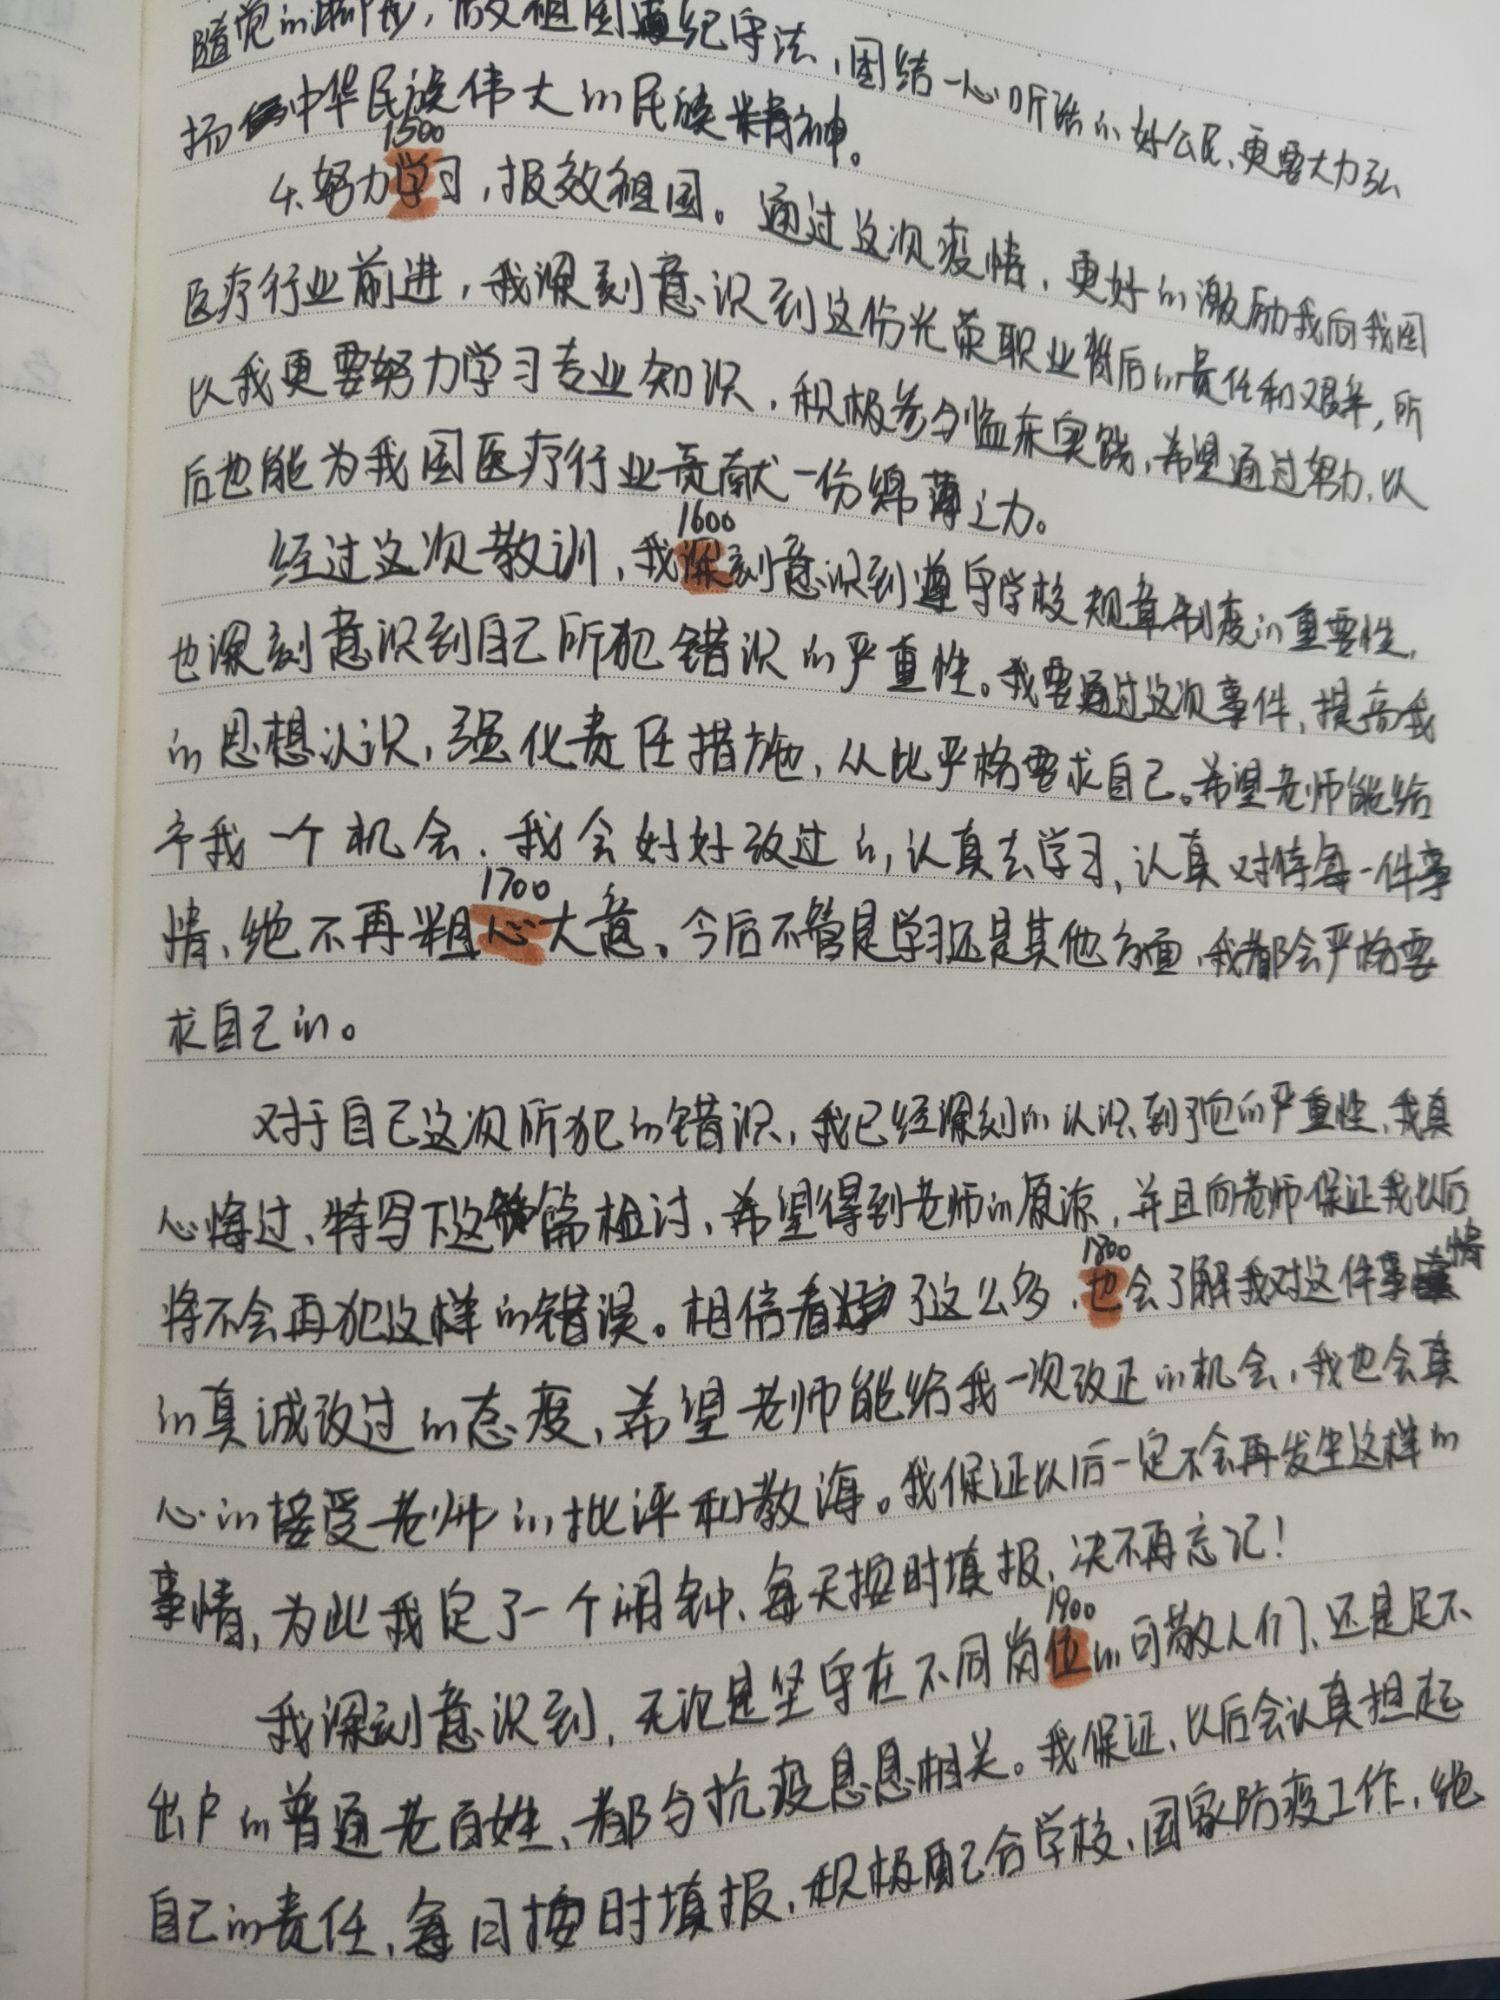 随党的脚步,做祖国遵纪守法,团结一心听话的好公民、更要大力弘
扬中华民族伟大的民族精神。
1500
4.努力学习,报效祖国。通过这次疫情,更好的激励我向我国
医疗行业前进,我深刻意识到这份光荣职业背后的责任和艰辛,所
以我更要努力学习专业知识,积极参与临床实践,希望通过努力,以
后也能为我国医疗行业贡献一份绵薄之力。
1600
经过这次教训,我深刻意识到遵守学校规章制度的重要性,
也深刻意识到自己所犯错误的严重性。我要通过这次事件,提高我
的思想认识,强化责任措施,从此严格要求自己。希望老师能给
予我一个机会、我会好好改过的,认真去学习,认真对待每一件事
1700
情、绝不再粗心大意。今后不管是学习还是其他方面,我都会严格要
求自己的。
对于自己这次所犯的错误,我已经深刻的认识到了它的严重性,我真
心悔过、特写下这篇检讨,希望得到老师的原谅,并且向老师保证我以后
1800
将不会再犯这样的错误。相信看了这么多,也会了解我对这件事情
的真诚改过的态度,希望老师能给我一次改正的机会,我也会真
心的接受老师的批评和教海。我保证以后一定不会再发生这样的
事情,为此我定了一个闹钟、每天按时填报,决不再忘记!
1900
我深刻意识到,无论是坚守在不同岗位的可敬人们、还是足不
出户的普通老百姓、都与抗疫息息相关。我保证,以后会认真担起
自己的责任,每日按时填报,积极配合学校、国家防疫工作,绝